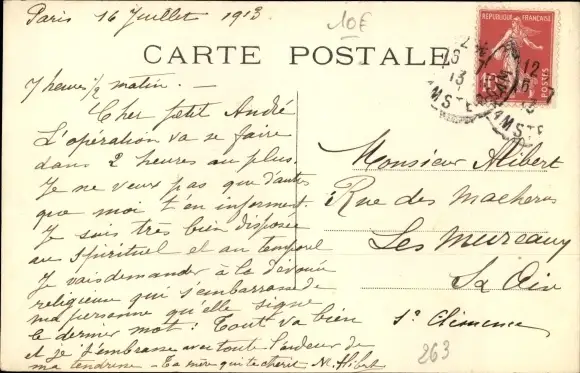 Paris 16 Juillet 1913
10€
CARTE POSTALE
7 heures 1/2 matin. —
Cher petit André
L'opération va se faire
dans 2 heures au plus.
Je ne veux pas que d'autres
que moi t'en informent.
Je suis très bien disposée
au spirituel et au temporel
Je vais demander à la dévouée
religieuse qui s'embarrasse de
ma personne qu'elle signe
le dernier mot : Tout va bien
et je t'embrasse avec toute l'ardeur de
ma tendresse — Ta mère qui te chérit N. Alibert
RÉPUBLIQUE FRANÇAISE
POSTES
AMSTERDAM
Monsieur Alibert
Rue des
Les Mureaux
S.
Sr Clémence
263